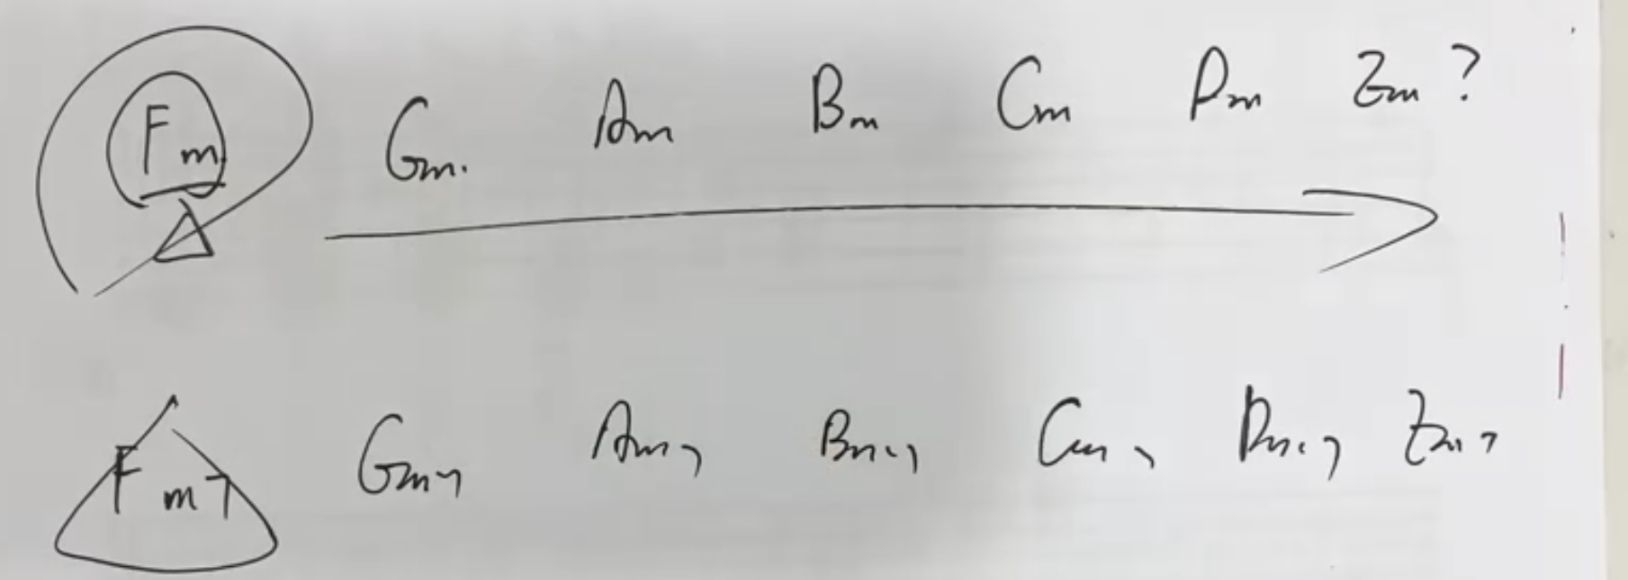 Fm Gm. Am Bm Cm Dm Em?
Fm7 Gm7 Am7 Bm7 Cm7 Dm7 Em7